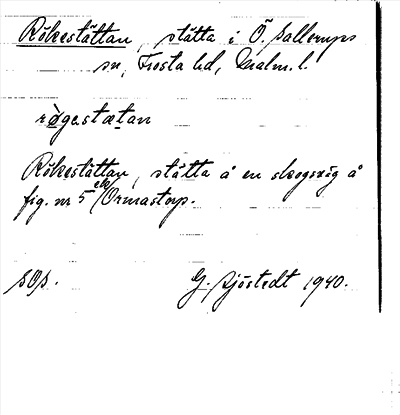 Rökestättan, stätta i Ö. Sallerups
sn, Frosta hd, Malm. l.
røgestætan
Rökestättan, stätta å en skogsväg å
fig. nr 5 Ormastorp.
G. Sjöstedt 1940.